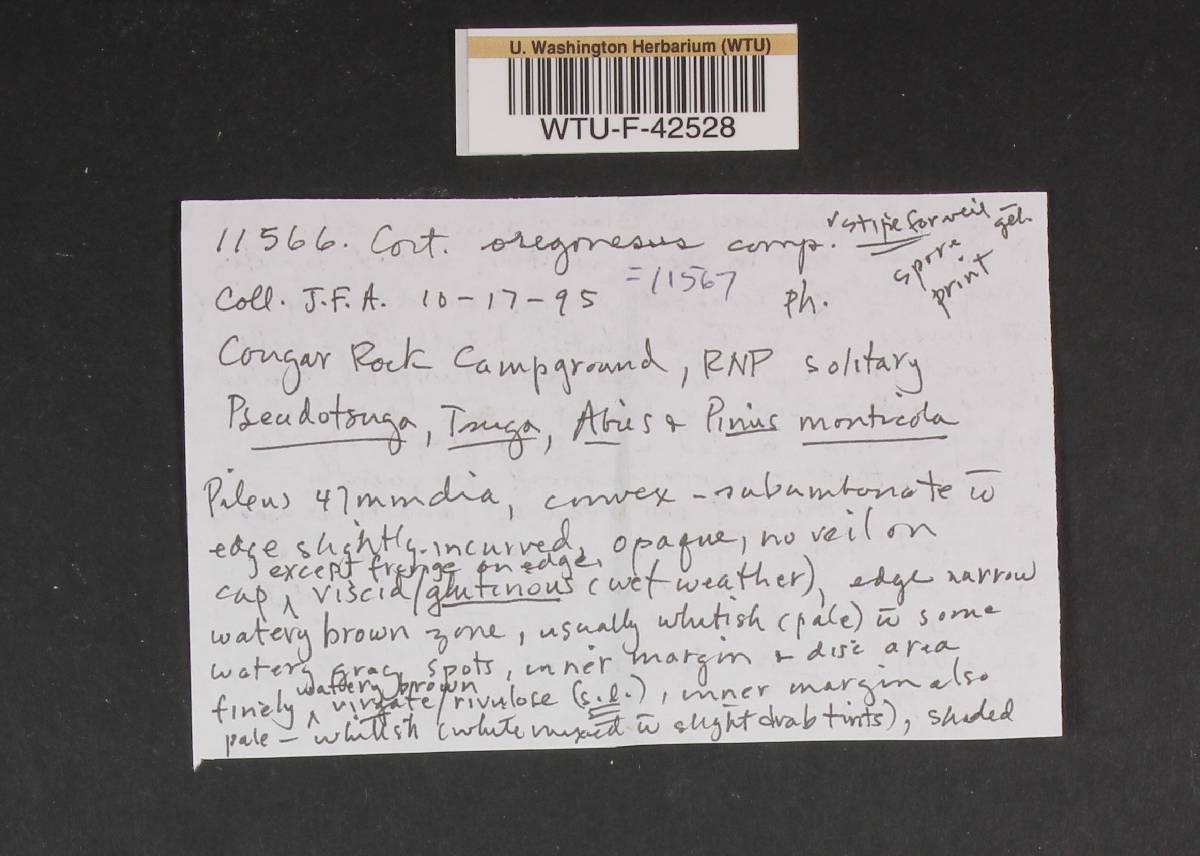 U. Washington Herbarium (WTU)
WTU-F-42528
11566. Cort. oregonesus comp. ✓ stipe for veil gel.
spore print
=11567
Coll. J.F.A. 10-17-95 ph.
Cougar Rock Campground, RNP solitary
Pseudotsuga, Tsuga, Abies & Pinius monticola
Pileus 47mm dia, convex - subumbonate w̄
edge slightly incurved, opaque, no veil on
except fringe on edge,
cap ^ viscid/glutinous (wet weather), edge narrow
watery brown zone, usually whitish (pale) w̄ some
watery gray spots, inner margin & disc area
watery brown
finely ^ virgate/rivulose (s.l.), inner margin also
pale - whitish (white mixed w̄ slight drab tints), shaded